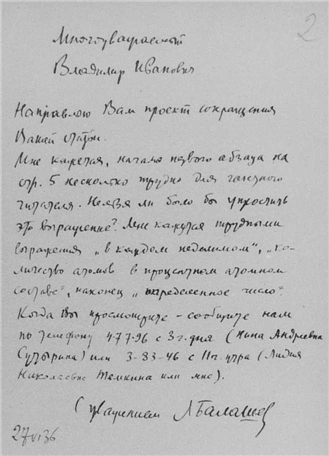 2
Многоуважаемый
Владимир Иванович
Направляю Вам проект сокращения
Вашей статьи.
Мне кажется, начало первого абзаца на
стр. 5 несколько трудно для газетного
читателя. Нельзя ли было бы упростить
это выражение? Мне кажутся трудными
выражения „в каждом неделимом", „ко-
личество атомов в процентном атомном
составе", наконец „определенное число".
Когда Вы просмотрите – сообщите нам
по телефону 4-77-96 с 3 ч. дня (Нина Андреевна
) или 3-83-46 с 11 ч. утра (Лидия
Николаевна Темкина или мне).
С уважением Л Балашев
27 VI 36